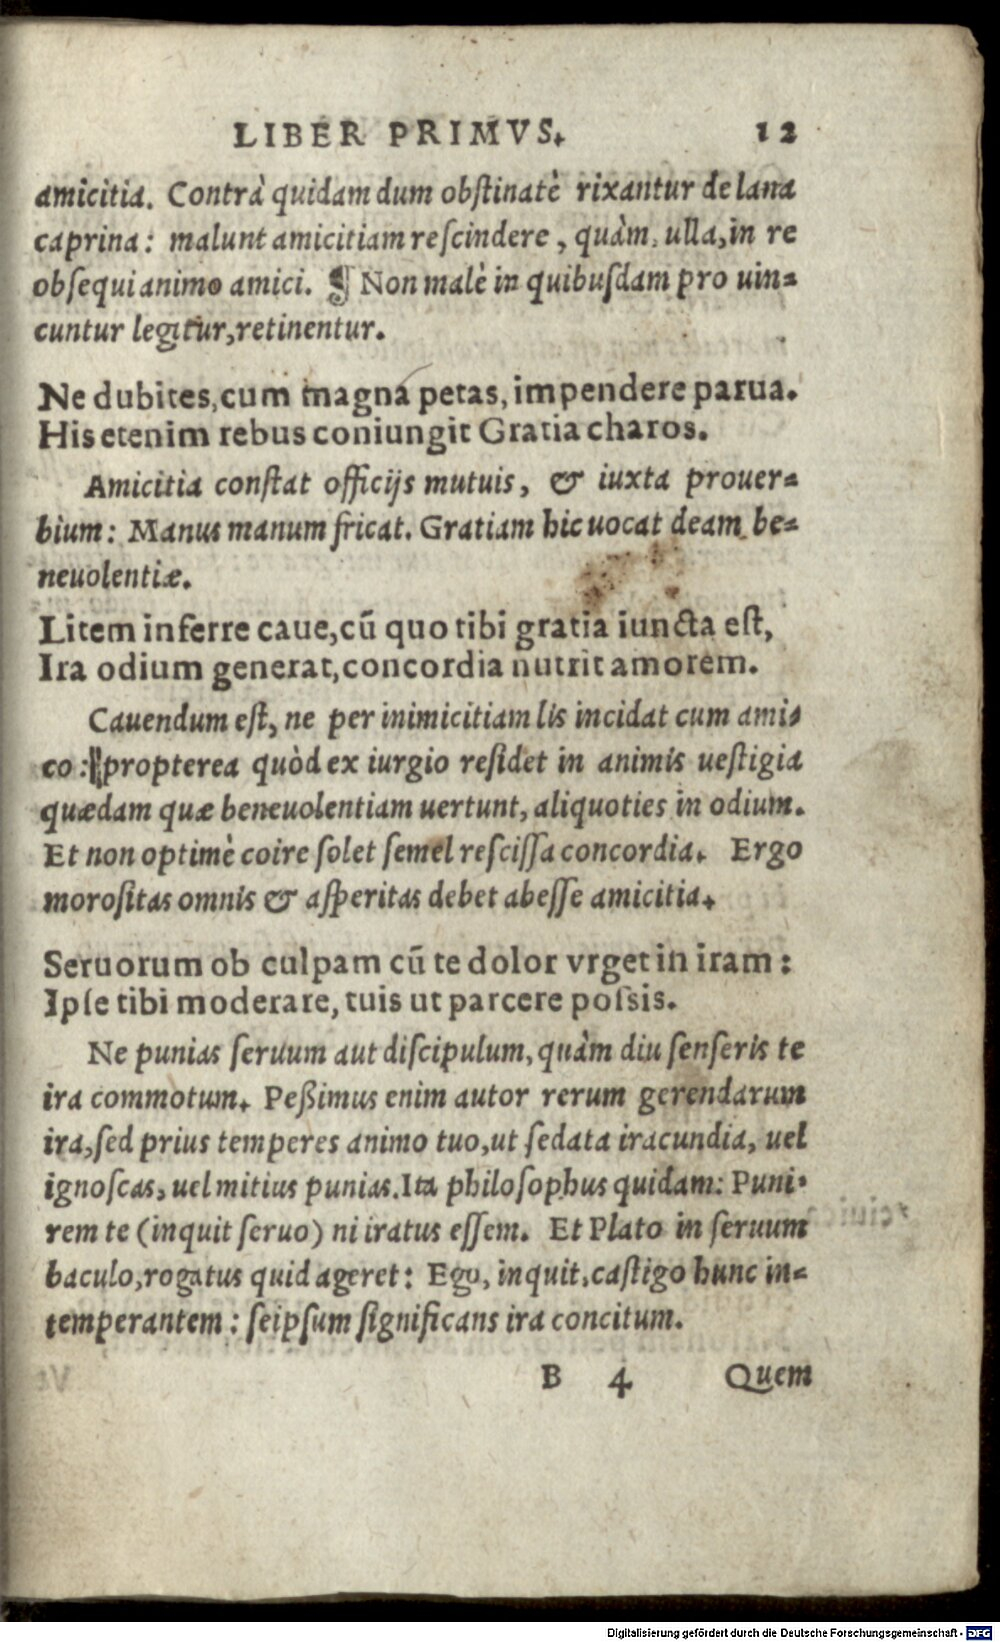 LIBER PRIMVS. 12
amicitia. Contrà quidam dum obſtinatè rixantur de lana
caprina: malunt amicitiam reſcindere, quàm, ulla, in re
obſequi animo amici. ¶ Non malè in quibuſdam pro uin⸗
cuntur legitur, retinentur.
Ne dubites, cum magna petas, impendere parua.
His etenim rebus coniungit Gratia charos.
Amicitia conſtat officijs mutuis, & iuxta prouer⸗
bium: Manus manum fricat. Gratiam hic uocat deam be⸗
neuolentiæ.
Litem inferre caue, cũ quo tibi gratia iuncta eſt,
Ira odium generat, concordia nutrit amorem.
Cauendum eſt, ne per inimicitiam lis incidat cum ami⸗
co: propterea quòd ex iurgio reſidet in animis ueſtigia
quædam quæ beneuolentiam uertunt, aliquoties in odium.
Et non optimè coire ſolet ſemel reſciſſa concordia. Ergo
moroſitas omnis & aſperitas debet abeſſe amicitia.
Seruorum ob culpam cũ te dolor vrget in iram:
Ipſe tibi moderare, tuis ut parcere poſsis.
Ne punias ſeruum aut diſcipulum, quàm diu ſenſeris te
ira commotum. Peßimus enim autor rerum gerendarum
ira, ſed prius temperes animo tuo, ut ſedata iracundia, uel
ignoſcas, uel mitius punias. Ita philoſophus quidam: Puni⸗
rem te (inquit ſeruo) ni iratus eſſem. Et Plato in ſeruum
baculo, rogatus quid ageret: Ego, inquit, caſtigo hunc in⸗
temperantem: ſeipſum ſignificans ira concitum.
B 4 Quem
Digitalisierung gefördert durch die Deutsche Forschungsgemeinschaft - DFG